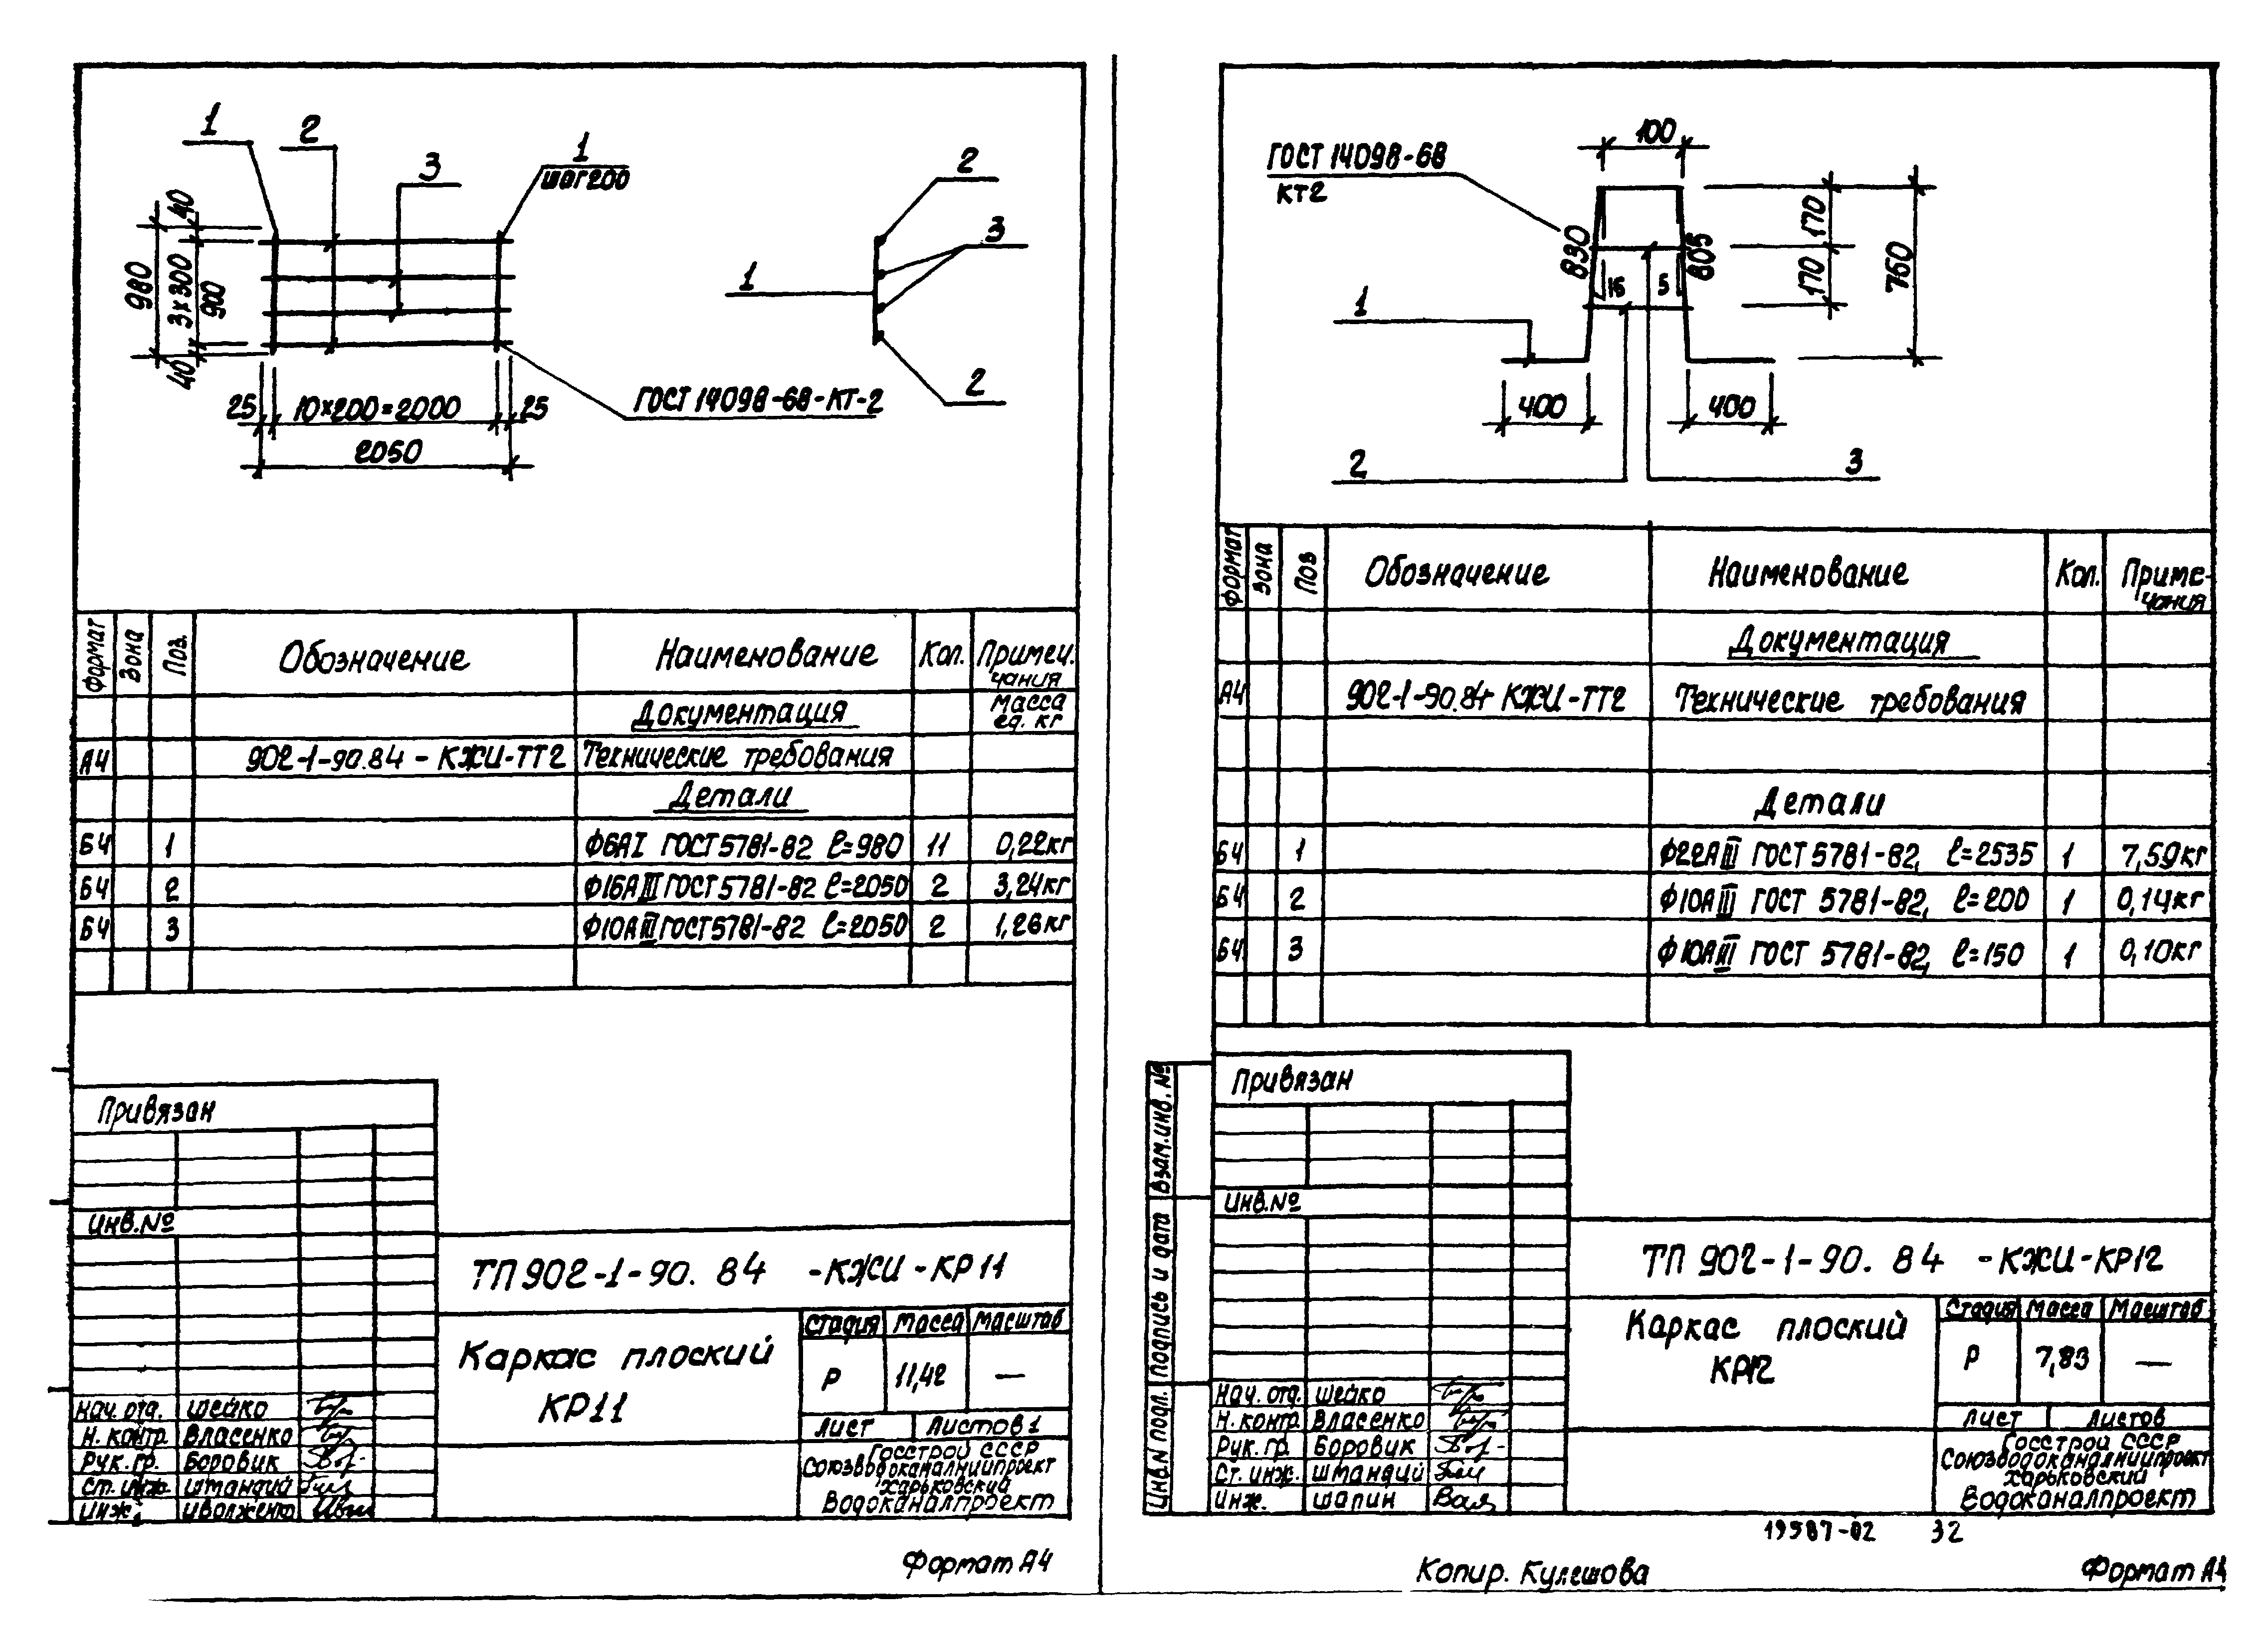 1
2
3
1
шаг 200
40
980
3×300
900
40
25
10×200=2000
25
2050
ГОСТ 14098-68-КТ-2
2
3
1
2
Формат
Зона
Поз.
Обозначение
Наименование
Кол.
Примечания
Документация
Масса ед. кг
А4 902-1-90.84 - КЖИ-ТТ2 Технические требования
Детали
Б4 1 Ф6АI ГОСТ 5781-82 ℓ=980 11 0,22кг
Б4 2 Ф16АIII ГОСТ 5781-82 ℓ=2050 2 3,24кг
Б4 3 Ф10АIII ГОСТ 5781-82 ℓ=2050 2 1,26кг
Привязан
Инв.№
ТП 902-1-90.84 -КЖИ-КР11
Каркас плоский
КР11
Стадия Масса Масштаб
Р 11,42 —
Лист Листов 1
Госстрой СССР
Союзводоканалниипроект
Харьковский
Водоканалпроект
Нач. отд. Шейко
Н. контр. Власенко
Рук. гр. Боровик
Ст. инж. Штандий
Инж. Иволженко
Формат А4
ГОСТ 14098-68
КТ2
100
830
805
15
5
170
170
760
1
400
400
2
3
Формат
Зона
Поз
Обозначение
Наименование
Кол.
Примечания
Документация
А4 902-1-90.84 КЖИ-ТТ2 Технические требования
Детали
Б4 1 Ф22АIII ГОСТ 5781-82, ℓ=2535 1 7,59кг
Б4 2 Ф10АIII ГОСТ 5781-82, ℓ=200 1 0,14кг
Б4 3 Ф10АIII ГОСТ 5781-82, ℓ=150 1 0,10кг
Привязан
Инв.№
Взам.инв.№
Подпись и дата
Инв.N подл.
ТП 902-1-90.84 -КЖИ-КР12
Каркас плоский
КР12
Стадия Масса Масштаб
Р 7,83 —
Лист Листов
Госстрой СССР
Союзводоканалниипроект
Харьковский
Водоканалпроект
Нач. отд. Шейко
Н. контр. Власенко
Рук. гр. Боровик
Ст. инж. Штандий
Инж. Шапин
19587-02 32
Копир. Кулешова
Формат А4